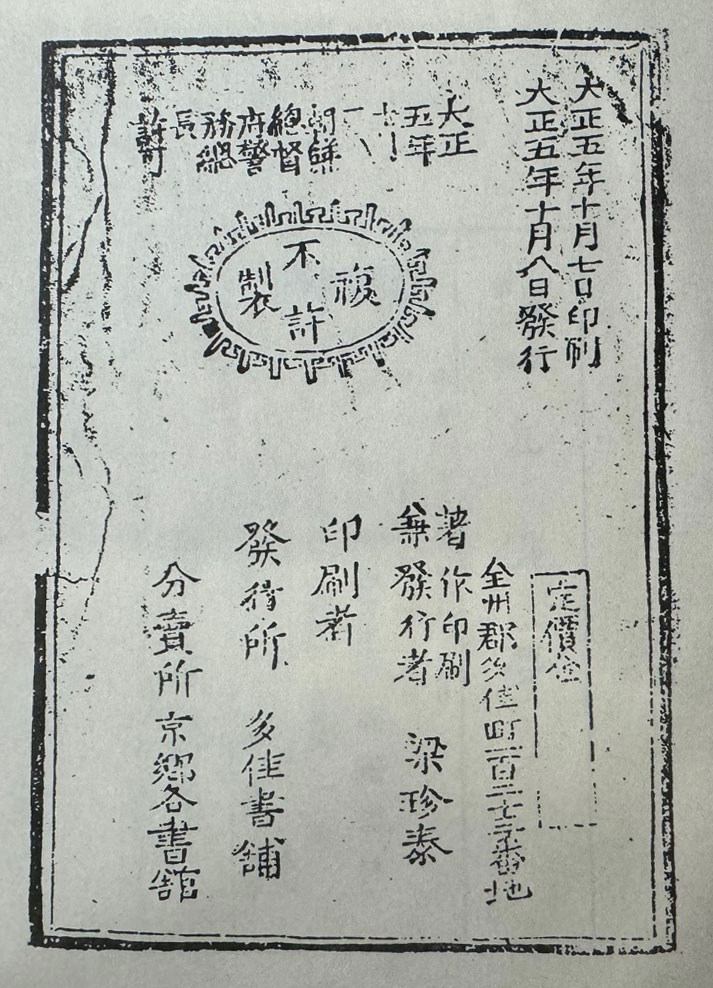 大正五年十月七日印刷
大正五年十月八日發行
大正
五年
朝鮮
總督
府警
務總
長
許可
不許複製
定價金
全州郡多佳町番地
著作印刷
兼發行者 梁珍泰
印刷者
發行所 多佳書舖
分賣所 京鄉各書舘